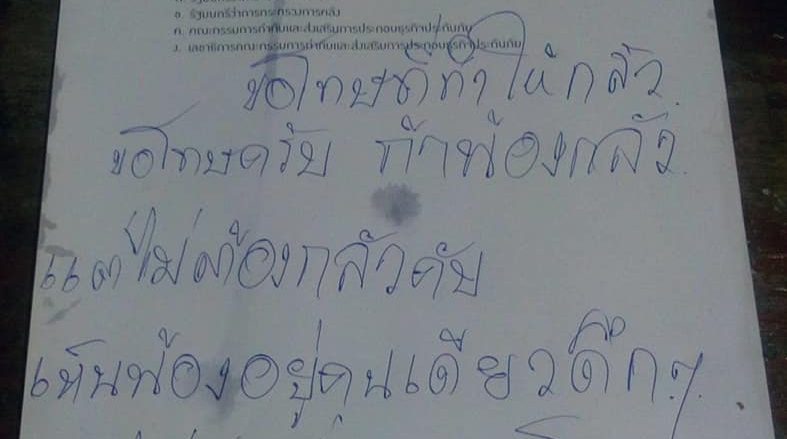 ข. รัฐมนตรีว่าการกระทรวงการคลัง
ค. คณะกรรมการกำกับและส่งเสริมการประกอบธุรกิจประกันภัย
ง. เลขาธิการคณะกรรมการกำกับและส่งเสริมการประกอบธุรกิจประกันภัย
ขอโทษที่ทำให้กลัว.
ขอโทษครับ ถ้าน้องกลัว.
แต่ไม่ต้องกลัวคับ
เห็นน้องอยู่คนเดียวดึกๆ.